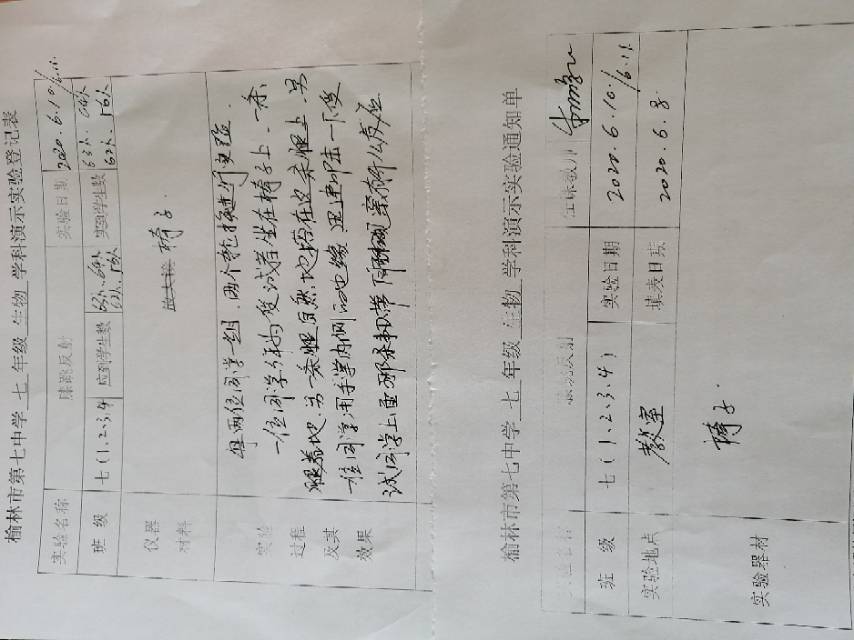 榆林市第七中学 七 年级 生物 学科演示实验登记表
实验名称 膝跳反射 实验日期 2020.6.10/6.11
班 级 七(1、2、3、4 应到学生数 63人、64人 62人、16人 实到学生数 63人、64人 62人、16人
仪器 材料 椅子.
实验 过程 及其 效果
每两位同学一组,两个轮换进行实验.
一位同学作为受试者坐在椅子上,一条
腿着地,另一条腿自然地搭在这条腿上,另
一位同学用手掌内侧的边缘,迅速叩击一下受
试同学上面那条韧带
榆林市第七中学 七 年级 生物 学科演示实验通知单
膝跳反射 任课教师
班 级 七(1、2、3、4) 实验日期 2020.6.10/6.11
实验地点 教室 填表日期 2020.6.8.
实验器材 椅子.